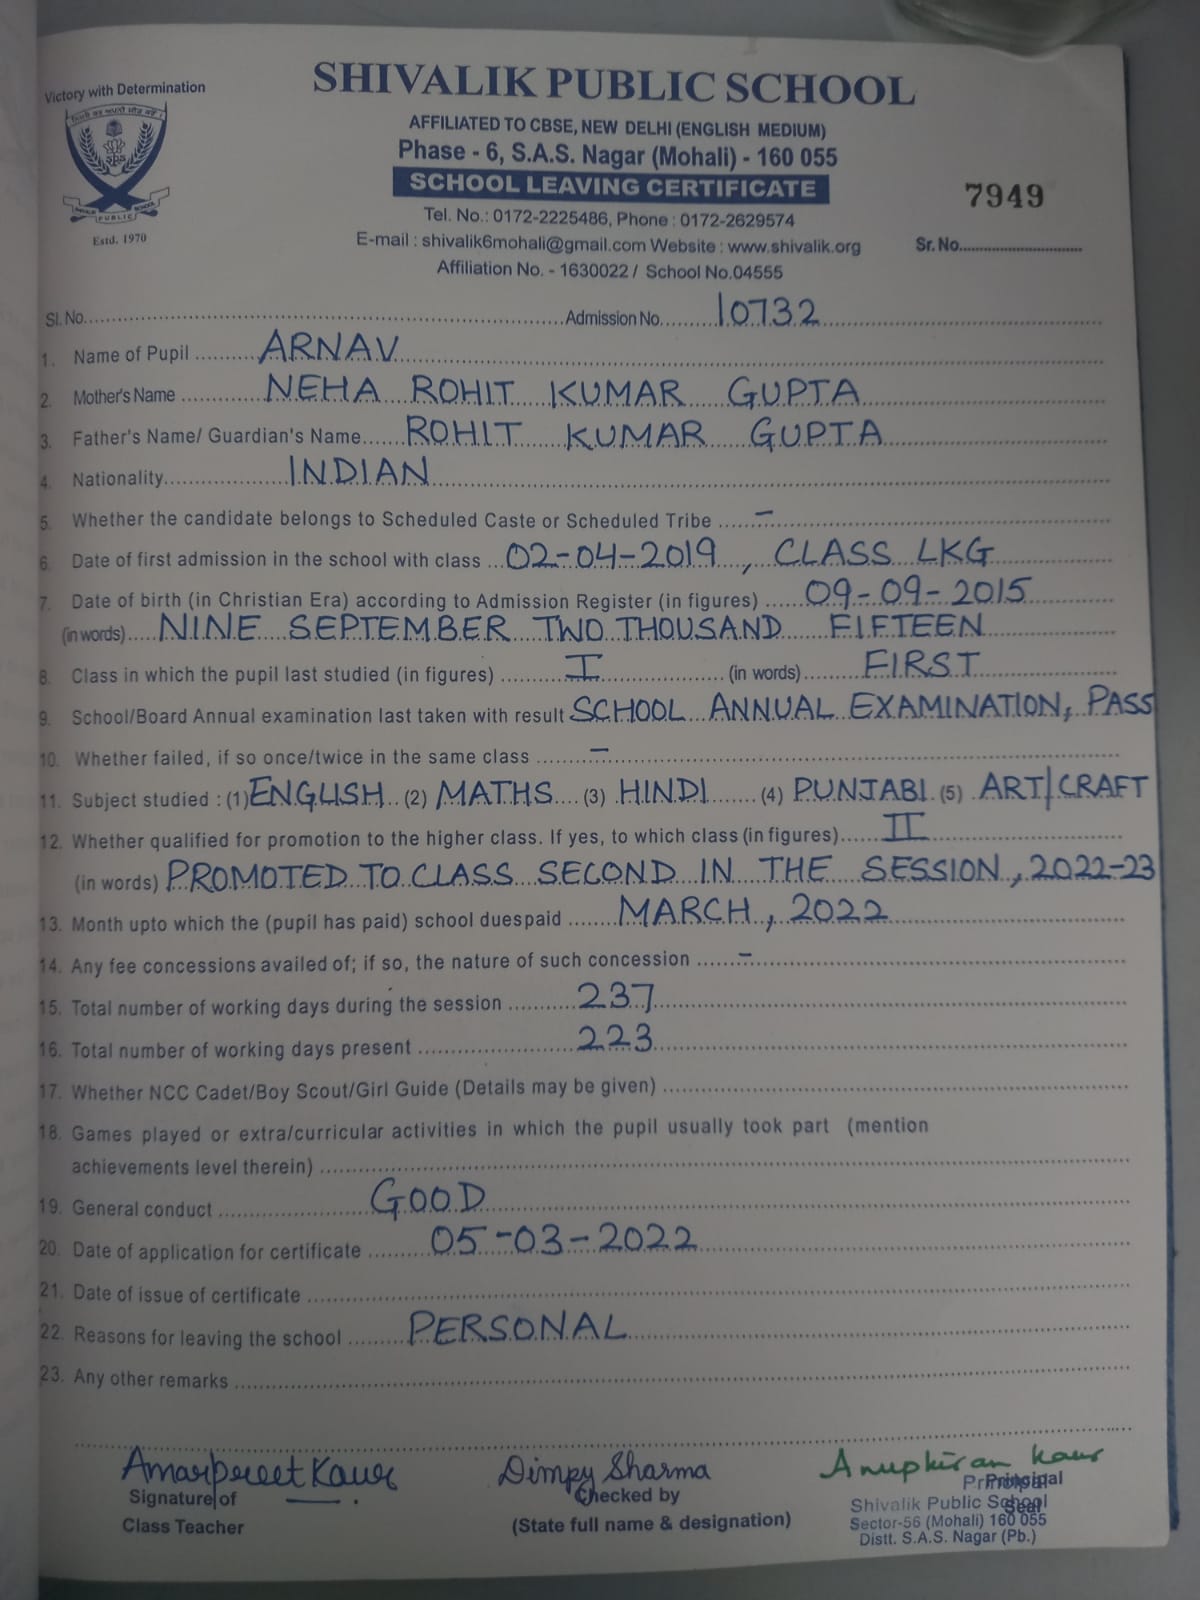 Victory with Determination
SHIVALIK PUBLIC SCHOOL
AFFILIATED TO CBSE, NEW DELHI (ENGLISH MEDIUM)
Phase - 6, S.A.S. Nagar (Mohali) - 160 055
SCHOOL LEAVING CERTIFICATE
7949
Tel. No.: 0172-2225486, Phone : 0172-2629574
PUBLIC SCHOOL
Estd. 1970
E-mail : shivalik6mohali@gmail.com Website : www.shivalik.org
Sr. No.
Affiliation No. - 1630022 / School No.04555
Sl. No. Admission No. 10732
1. Name of Pupil ARNAV
2. Mother's Name NEHA ROHIT KUMAR GUPTA
3. Father's Name/ Guardian's Name ROHIT KUMAR GUPTA
4. Nationality INDIAN
5. Whether the candidate belongs to Scheduled Caste or Scheduled Tribe –
6. Date of first admission in the school with class 02-04-2019, CLASS LKG
7. Date of birth (in Christian Era) according to Admission Register (in figures) 09-09-2015
(in words) NINE SEPTEMBER TWO THOUSAND FIFTEEN
8. Class in which the pupil last studied (in figures) I (in words) FIRST
9. School/Board Annual examination last taken with result SCHOOL ANNUAL EXAMINATION, PASS
10. Whether failed, if so once/twice in the same class –
11. Subject studied : (1) ENGLISH (2) MATHS (3) HINDI (4) PUNJABI (5) ART/CRAFT
12. Whether qualified for promotion to the higher class. If yes, to which class (in figures) II
(in words) PROMOTED TO CLASS SECOND IN THE SESSION, 2022-23
13. Month upto which the (pupil has paid) school duespaid MARCH, 2022
14. Any fee concessions availed of; if so, the nature of such concession –
15. Total number of working days during the session 237
16. Total number of working days present 223
17. Whether NCC Cadet/Boy Scout/Girl Guide (Details may be given)
18. Games played or extra/curricular activities in which the pupil usually took part (mention
achievements level therein)
19. General conduct GOOD
20. Date of application for certificate 05-03-2022
21. Date of issue of certificate
22. Reasons for leaving the school PERSONAL
23. Any other remarks
Amarpreet Kaur
Signature of
Class Teacher
Dimpy Sharma
Checked by
(State full name & designation)
Anupkiran Kaur
Principal
Principal
Seal
Shivalik Public School
Sector-56 (Mohali) 160 055
Distt. S.A.S. Nagar (Pb.)